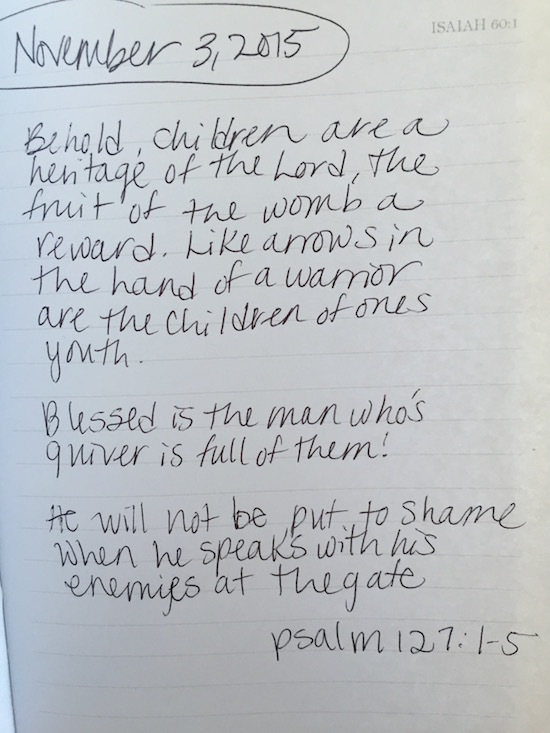 ISAIAH 60:1
November 3, 2015
Behold, children are a
heritage of the Lord, the
fruit of the womb a
reward. Like arrows in
the hand of a warrior
are the children of ones
youth.
Blessed is the man who's
quiver is full of them!
He will not be put to shame
when he speaks with his
enemies at the gate
psalm 127:1-5